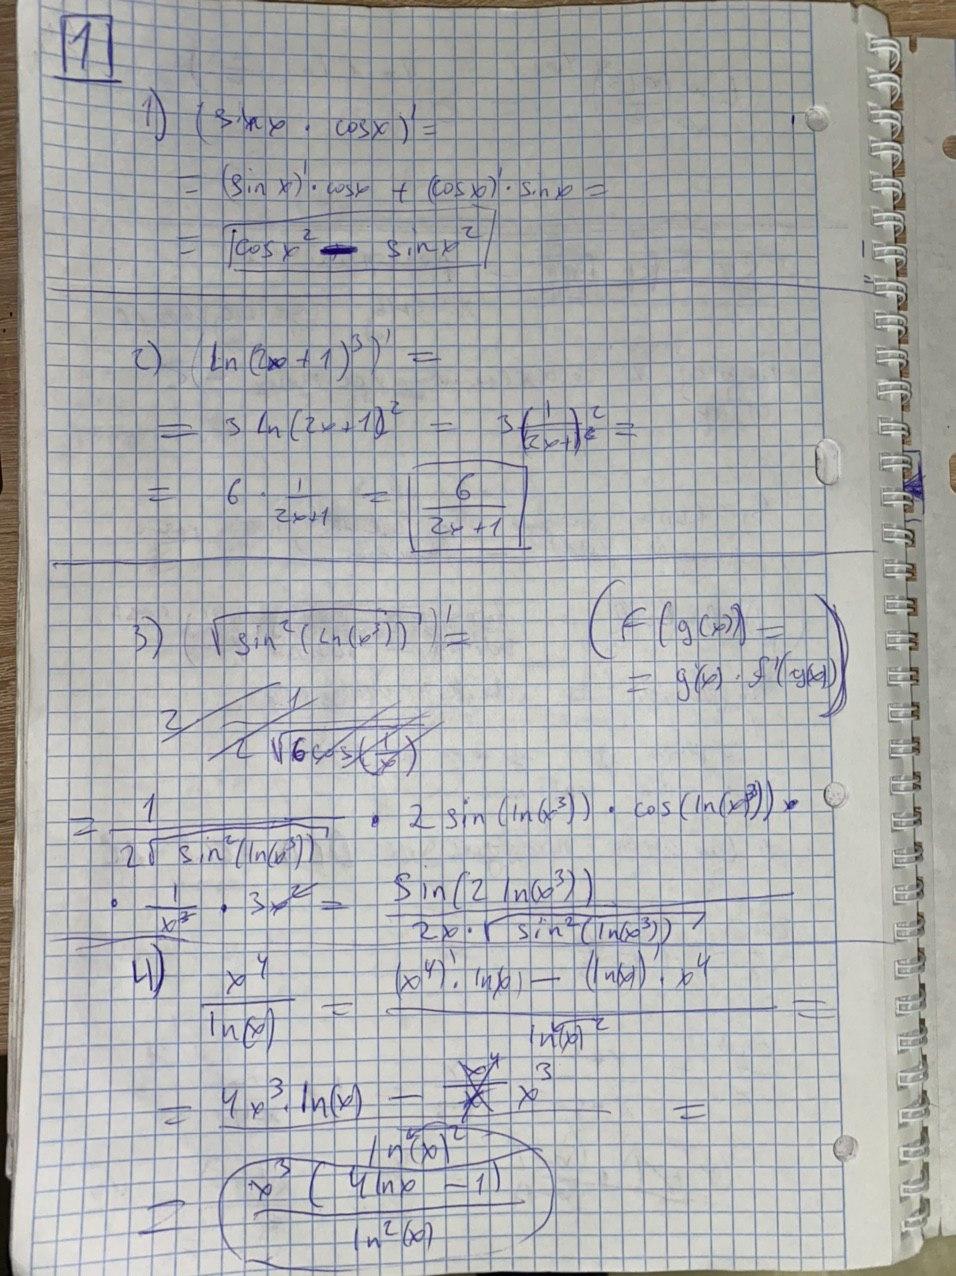 1
1) (sinx · cosx)' =
= (sinx)' · cosx + (cosx)' · sinx =
= cosx² - sinx²
2) (ln(2x+1)³)' =
= 3 ln(2x+1)² = 3(1/(2x+1))² =
= 6 · 1/(2x+1) = 6/(2x+1)
3) (√(sin²(ln(x³))))' =
(f(g(x)) =
= g'(x) · f'(g(x)))
= 1/(2√(sin²(ln(x³)))) · 2 sin(ln(x³)) · cos(ln(x³)) ·
· 1/x³ · 3x² = sin(2 ln(x³))/(2x · √(sin²(ln(x³))))
4) x⁴/ln(x) = ((x⁴)' · ln(x) - (ln(x))' · x⁴)/ln(x)² =
= (4x³ · ln(x) - x³)/ln(x)² =
= x³(4lnx - 1)/ln²(x)